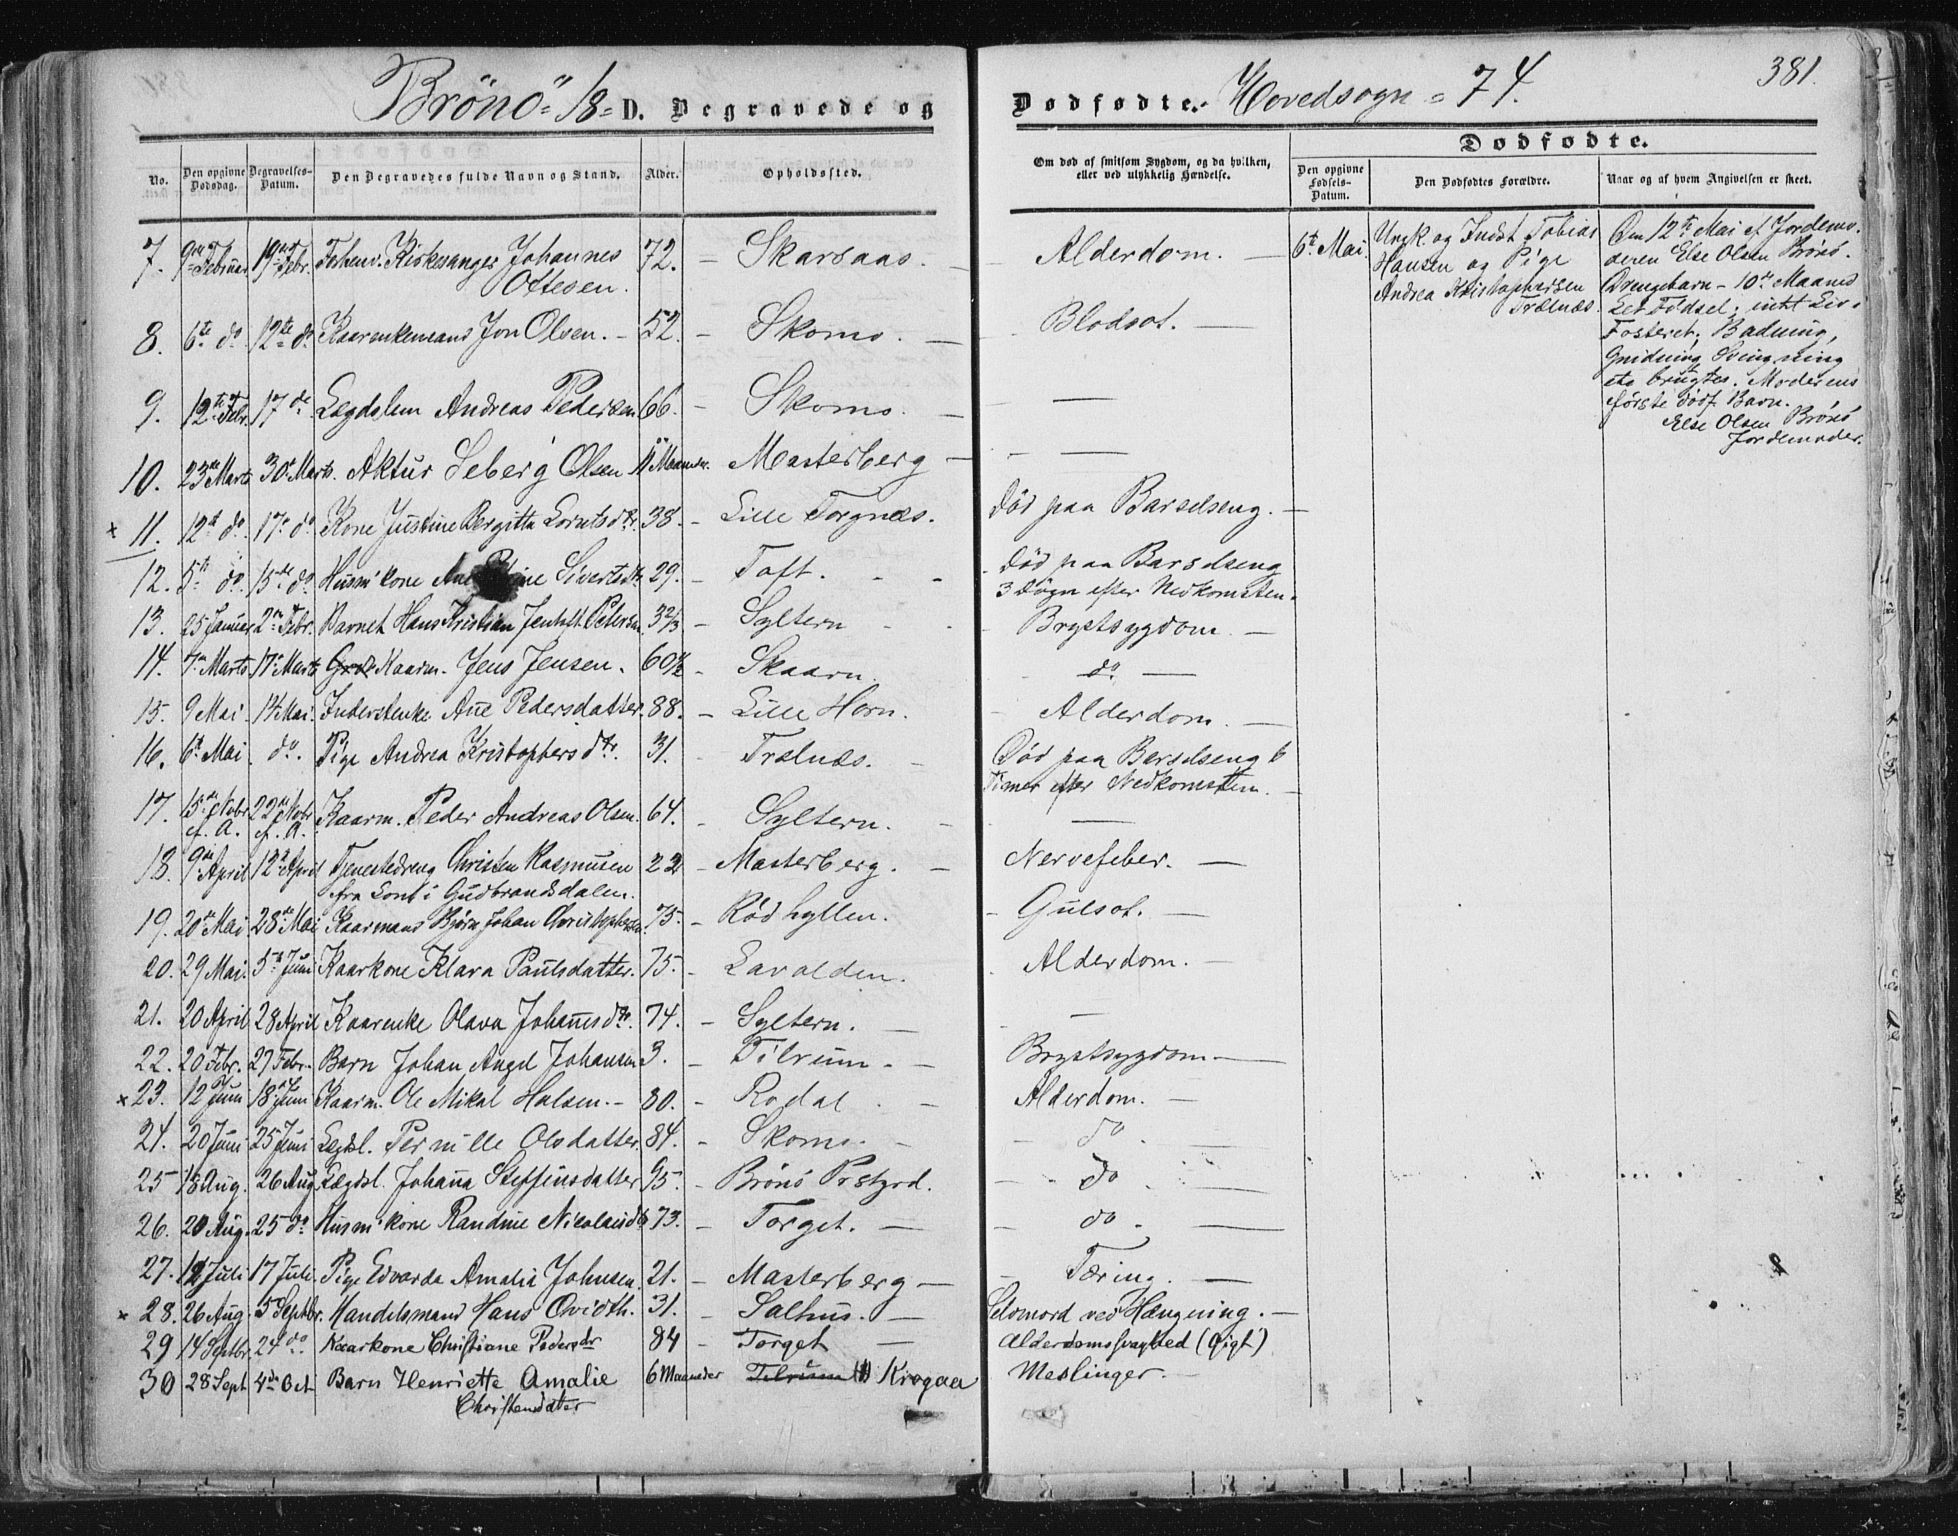 Brönö = 18 = D. Begravede og
Dødfødte. Hovedsogn = 74.
381.
Dødfødte.
No.
Den opgivne Dødsdag.
Begravelses-Datum.
Den Begravedes fulde Navn og Stand.
Alder.
Opholdssted.
Om død af smitsom Sygdom, og da hvilken, eller ved ulykkelig Hændelse.
Den opgivne Fødsels-Datum.
Den Dødfødtes Forældre.
Naar og af hvem Angivelsen er skeet.
7. 9de Februar 19de Febr. Kirkesanger Johannes Ottesen. 72. - Skarsaas. - Alderdom. -
8. 6te do 12te do Kaarenkemand Jon Olsen. - 52. - Skomo. - Blodsot. -
9. 12te Febr. 17 de Lægdslem Andreas Pedersen 66. - Skomo. - —
10. 23de Marts 30te Marts. Aktur Seberg Olsen 11 Maaneder. - Masterberg - —
x 11. 12te do 17de do Kone Justine Bergitta Lorntsdtr. 38. - Lille Torgnæs. Død paa Barselseng. -
12. 5te do 15de do Husm'kone Ane Sivertsdtr. 29. - Toft. - Død paa Barselseng
3 Døgn efter Nedkomsten.
13. 25 Januar 2den Febr. Barnet Hans Kristian Petersen 3 2/3 - Syltern - Brystsygdom. -
14. 7de Marts 17de Marts Kaarm. Jens Jensen. 60 1/2 - Skaarn. - do. -
15. 9 Mai 14 Mai. Inderstenke Ane Pedersdatter. 88. - Lille Horn. Alderdom. -
16. 6te Mai do. Pige Andrea Kristophersdtr. 31. Trælnæs. - Død paa Barselseng 6
Timer efter Nedkomsten. -
17. 15de Novbr. f. A. 22de Novbr f. A. Kaarm. Peder Andreas Olsen. 64. - Syltern. - —
18. 9de April 12te April Tjenestedreng Christen Rasmusen 22 - Masterberg. - Nervefeber. -
fra Lom i Gudbrandsdalen.
19. 20de Mai 28de Mai Kaarmand Bjørn Johan Christophersen 75. - Rødhyllen. - Gulsot. -
20. 29 Mai. 5te Juni Kaarkone Klara Paulsdatter. 75. - Lavolden. Alderdom. -
21. 20 April 28 April Kaarenke Olava Johannsdtr. 74. - Syltern. - —
22. 20 Febr. 27 Febr. Barn Johan Angel Johansen 3. - Tilrum - Brystsygdom -
x 23. 12 Juni 18 Juni Kaarm. Ole Mikal Halsen. - 80. - Rodal. - Alderdom. -
24. 20 Juni 25 Juni Lægdsl. Pernille Olsdatter. 84. - Skomo. - do -
25 18 Aug. 26 Aug. Lægdsl. Johana Steffensdatter 95. - Brönö Prstgrd. do -
26. 20 Aug. 25 do Husm'kone Randine Nicolaisdtr 73. - Torget. - do. -
27. 12 Juli 17 Juli. Pige Edvarda Amalia Johnsen. 21. - Masterberg - Tæring. -
x 28. 26 Aug. 5 Septbr. Handelsmand Hans Qvidth. 31. - Salhus. - Selvmord ved Hængning. -
29 14 Septbr. 24 do Kaarkone Christiane Pedersdr 84 - Torget - Alderdomssvaghed (Gigt)
30 28 Sept 4de Oct Barn Henriette Amalie Christensdatter 6 Maaneder Tilrum Krogaa Meslinger. -
6te Mai.
Ungk. og Indst. Tobias
Hansen og Pige
Andrea Kristophersen
Trælnæs.
Den 12te Mai af Jordemo-
deren Else Olsen Brönö.
Drengebarn - 10de Maaned
Let Födsel; intet Liv i
Fosteret; Badning,
Gnidning, Svingning
etc brugtes. Moderens
förste dödf. Barn.
Else Olsen Brönö
Jordemoder.